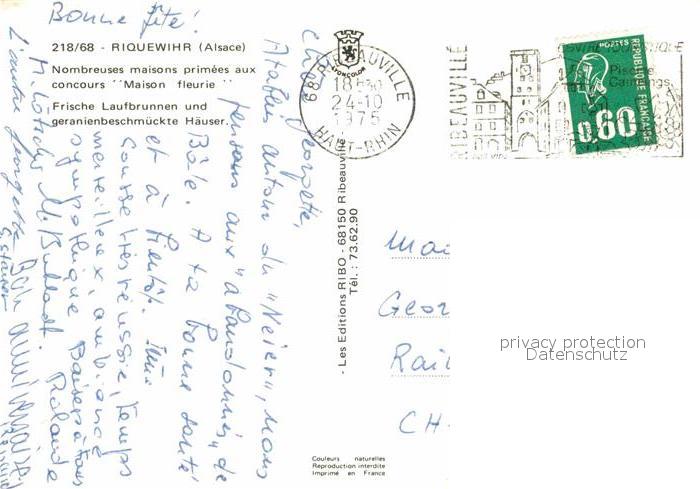 Bonne fête!
218/68 - RIQUEWIHR (Alsace)
Nombreuses maisons primées aux
concours "Maison fleurie"
Frische Laufbrunnen und
geranienbeschmückte Häuser.
STOECOLOR
68 RIBEAUVILLE
18H30
24-10
1975
HAUT-RHIN
RIBEAUVILLE
Piscine
Campings
POSTES
REPUBLIQUE FRANÇAISE
0,60
Chère Georgette,
Attablés autour du "Neier", nous
pensons aux "abandonnés" de
Bâle. A ta bonne santé
et à bientôt.
Course très réussie, temps
merveilleux, ambiance
sympathique. Baisers à tous
Rolande
M. Bulliard.
L'autre Georgette
Bon anniversaire
- Les Editions RIBO - 68150 Ribeauvillé -
Tél. : 73.62.90
Geor
Rai
CH-
privacy protection
Datenschutz
Couleurs naturelles
Reproduction interdite
Imprimé en France